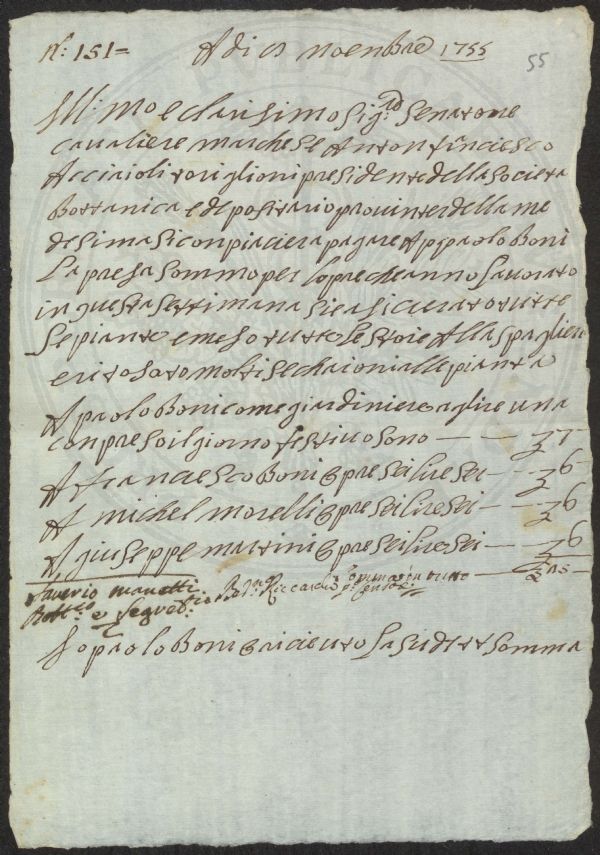 N: 151=
A di 01 noenbre 1755
55
Ill:mo e clarisimo Sig:re Senatore
Cavaliere marchese Anton francesco
Acciaioli toriglioni presidente della Societa
Bottanica e depositario pro interdella me
desima Si conpiacera pagare A paolo Boni
La presa Sommo per l opre che anno Lavorato
in questa Settimana
Le piante e meso tutto Le Stoie Alla Spagliera
A paolo Boni come giardiniere a lire una
conpreso il giorno festivo Sono — — 7
A francesco Boni opre Sei lire Sei — 6
A michel morelli opre Sei lire Sei — 6
A giuseppe martini opre Sei lire Sei — 6
Saverio Manetti
Bott:co e Segret:rio
Somma in tutto — 25
Io paolo Boni o riceuto La Sudetta Somma